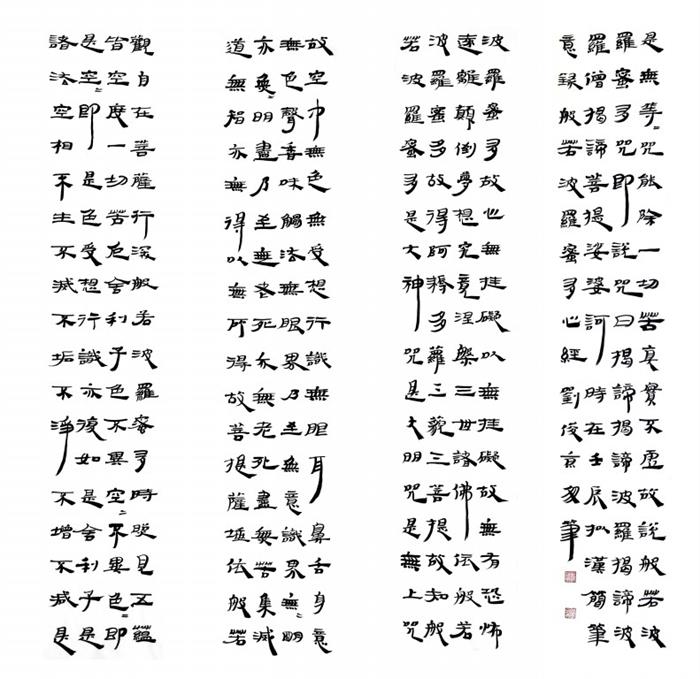 觀自在菩薩行深般若波羅蜜多時照見五蘊
皆空度一切苦厄舍利子色不異空〻不異色〻即
是空〻即是色受想行識亦復如是舍利子是
諸法空相不生不滅不垢不淨不增不減是
故空中無色無受想行識無眼耳鼻舌身意
無色聲香味觸法無眼界乃至無意識界無〻明
亦無明盡乃至無老死亦無老死盡無苦集滅
道無智亦無得以無所得故菩提薩埵依般若
波羅蜜多故心無挂礙以無挂礙故無有恐怖
遠離顛倒夢想究竟涅槃三世諸佛依般若
波羅蜜多故得阿耨多羅三藐三菩提故知般
若波羅蜜多是大神咒是大明咒是無上咒
是無等〻咒能除一切苦真實不虛故說般若波
羅蜜多咒即說咒曰揭諦揭諦波羅揭諦波
羅僧揭諦菩提娑婆訶 時在壬辰拟漢簡筆
意錄般若波羅蜜多心經 劉俊京 筆